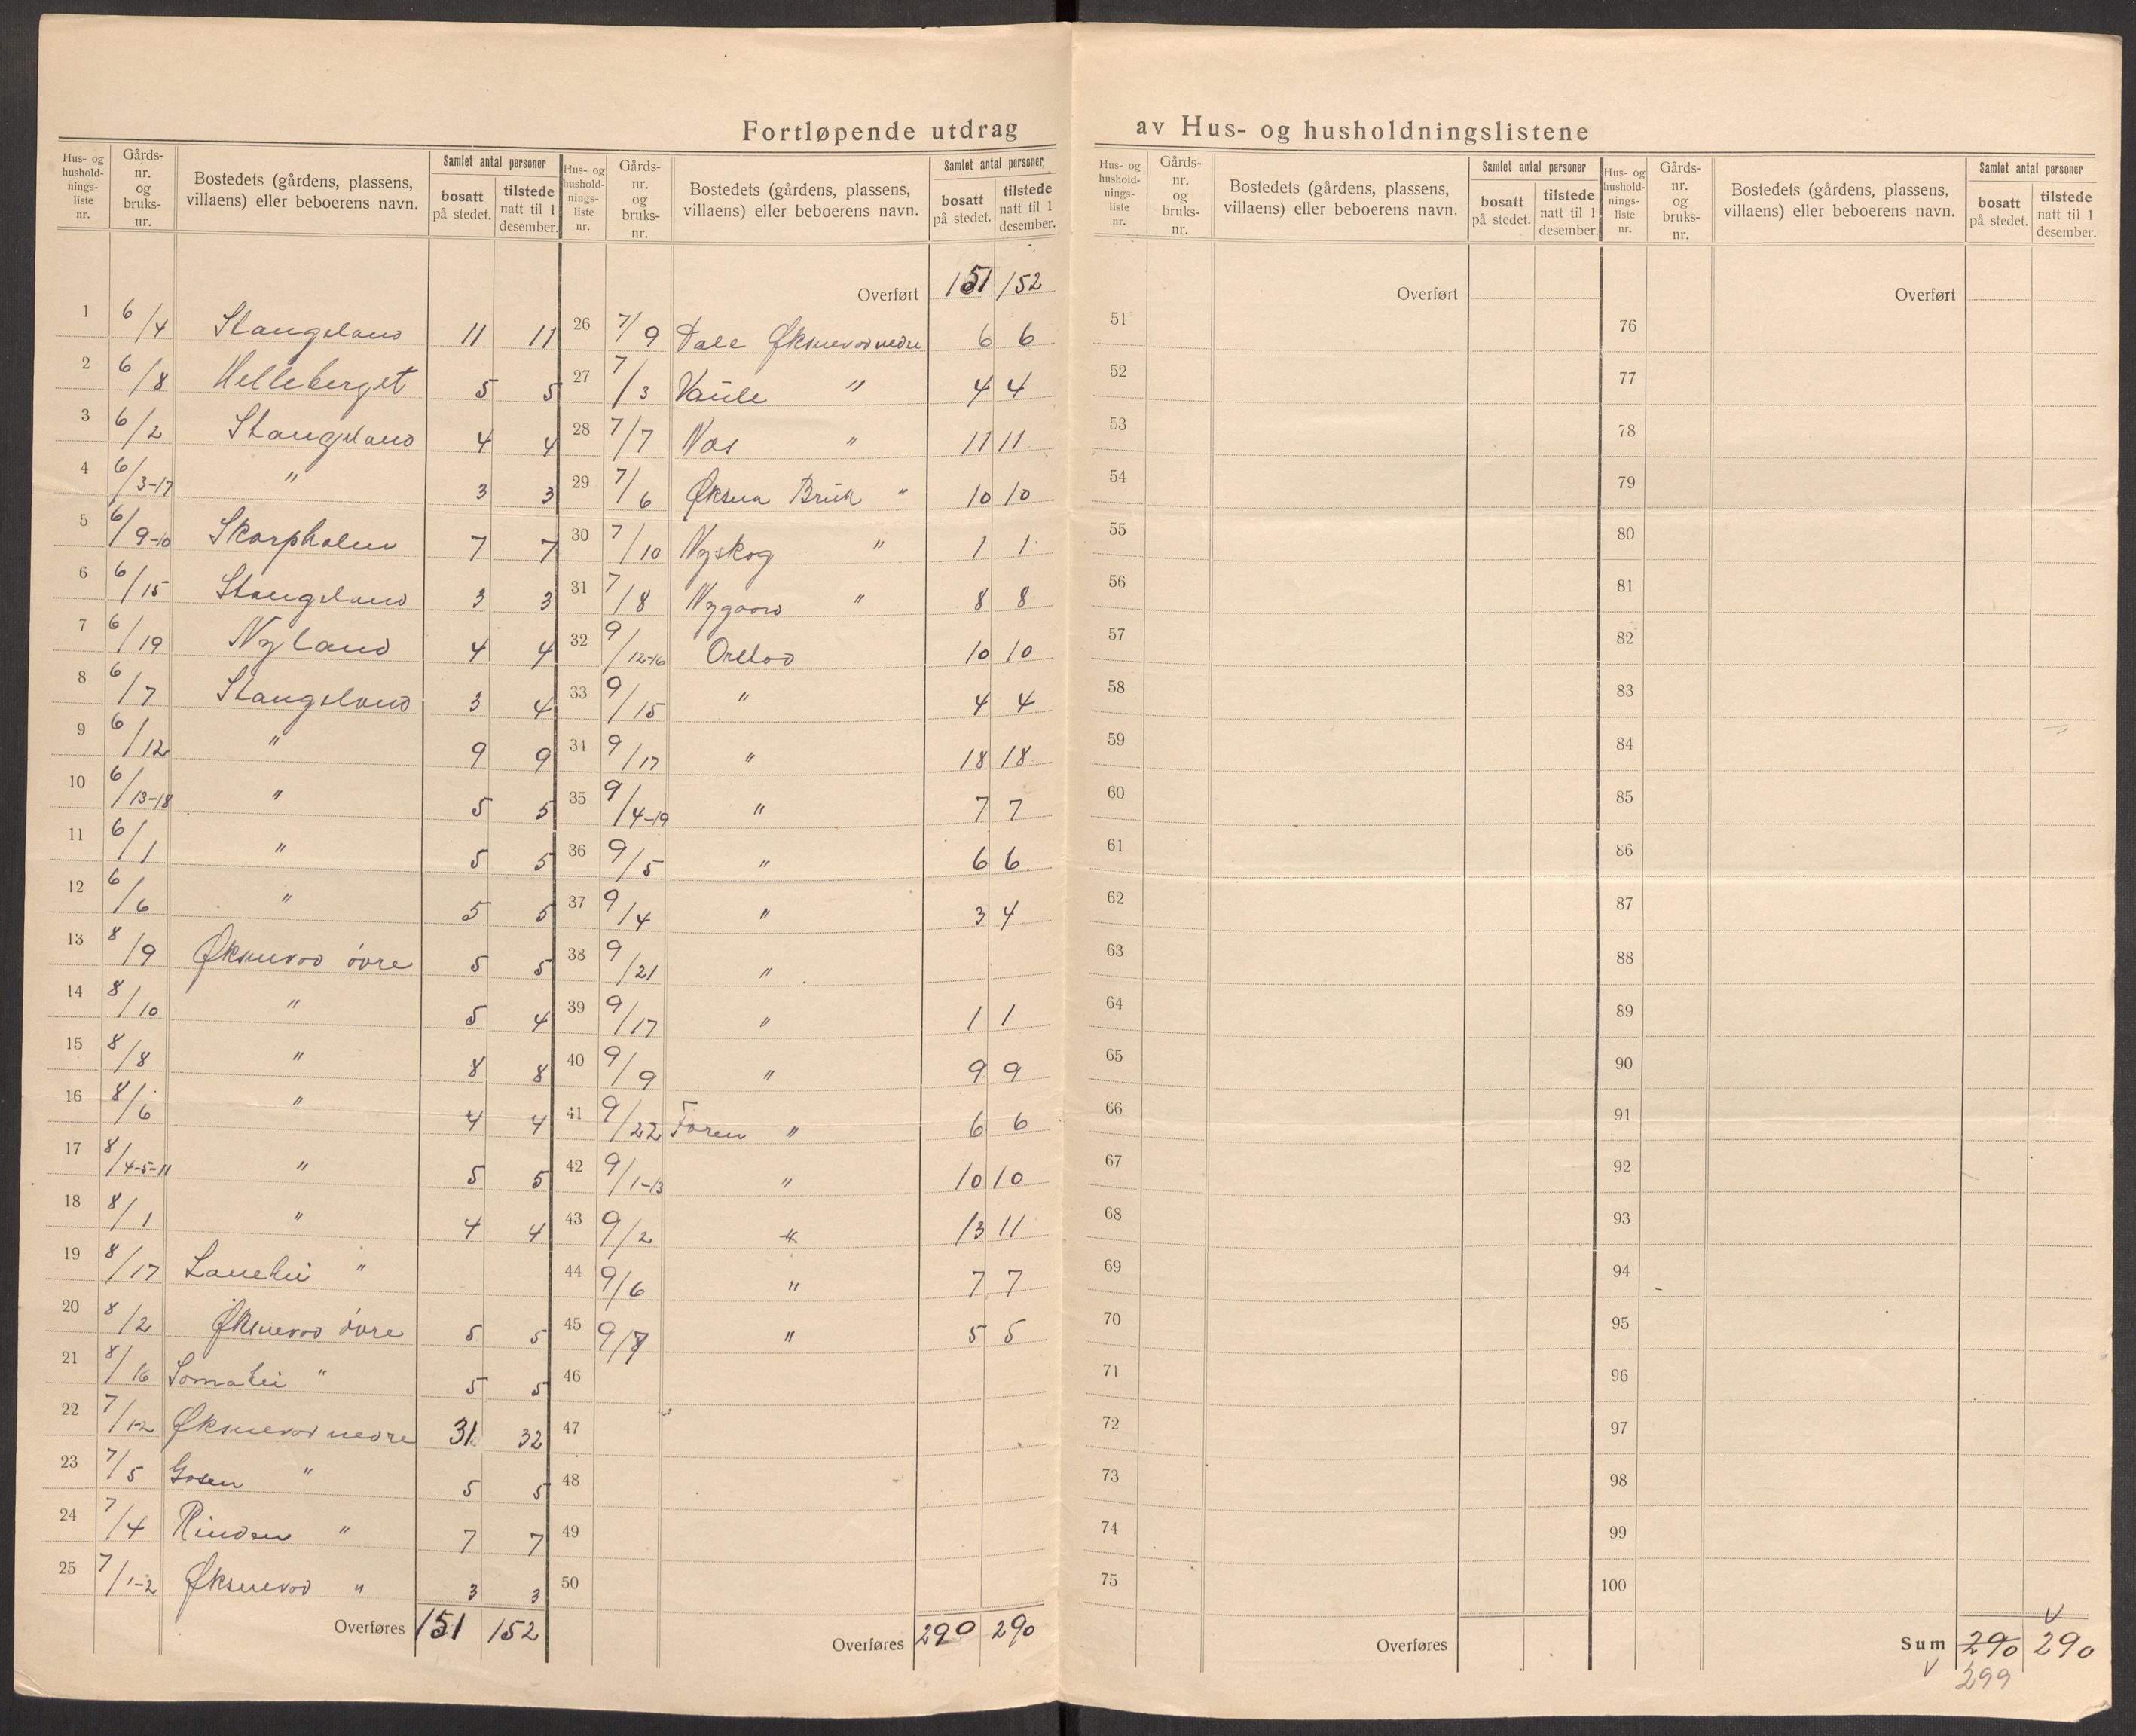 Fortløpende utdrag av Hus- og husholdningslistene
Hus- og hushold-nings-liste nr. Gårds-nr. og bruks-nr. Bostedets (gårdens, plassens, villaens) eller beboerens navn. Samlet antal personer bosatt på stedet. tilstede natt til 1 desember.
1 6/4 Stangeland 11 11
2 6/8 Helleberget 5 5
3 6/2 Stangeland 4 4
4 6/3-17 " 3 3
5 6/9-10 Skarpholen 7 7
6 6/15 Stangeland 3 3
7 6/19 Nyland 4 4
8 6/7 Stangeland 3 4
9 6/12 " 9 9
10 6/13-18 " 5 5
11 6/1 " 5 5
12 6/6 " 5 5
13 8/9 Øksnevad övre 5 5
14 8/10 " 5 4
15 8/8 " 8 8
16 8/6 " 4 4
17 8/4-5-11 " 5 5
18 8/1 " 4 4
19 8/17 "
20 8/2 Øksnevad övre 5 5
21 8/16 Somahei " 5 5
22 7/12 Øksnevad nedre 31 32
23 7/5 Gosen " 5 5
24 7/4 Rinden " 7 7
25 7/1-2 Øksnevad " 3 3
Overføres 151 152
Hus- og hushold-nings-liste nr. Gårds-nr. og bruks-nr. Bostedets (gårdens, plassens, villaens) eller beboerens navn. Samlet antal personer bosatt på stedet. tilstede natt til 1 desember.
Overført 151 152
26 7/9 Dale Øksnevad nedre 6 6
27 7/3 Vaule " 4 4
28 7/7 Nos " 11 11
29 7/6 Øksna Bruk " 10 10
30 7/10 Nyskog " 1 1
31 7/8 Nygaard " 8 8
32 9/12-16 Orstad 10 10
33 9/15 " 4 4
34 9/17 " 18 18
35 9/4-19 " 7 7
36 9/5 " 6 6
37 9/4 " 3 4
38 9/21 "
39 9/17 " 1 1
40 9/9 " 9 9
41 9/22 Foren " 6 6
42 9/1-13 " 10 10
43 9/2 " 13 11
44 9/6 " 7 7
45 9/7 " 5 5
46
47
48
49
50
Overføres 290 290
Hus- og hushold-nings-liste nr. Gårds-nr. og bruks-nr. Bostedets (gårdens, plassens, villaens) eller beboerens navn. Samlet antal personer bosatt på stedet. tilstede natt til 1 desember.
Overført
51
52
53
54
55
56
57
58
59
60
61
62
63
64
65
66
67
68
69
70
71
72
73
74
75
Overføres
Hus- og hushold-nings-liste nr. Gårds-nr. og bruks-nr. Bostedets (gårdens, plassens, villaens) eller beboerens navn. Samlet antal personer bosatt på stedet. tilstede natt til 1 desember.
Overført
76
77
78
79
80
81
82
83
84
85
86
87
88
89
90
91
92
93
94
95
96
97
98
99
100
Sum 290 290
299